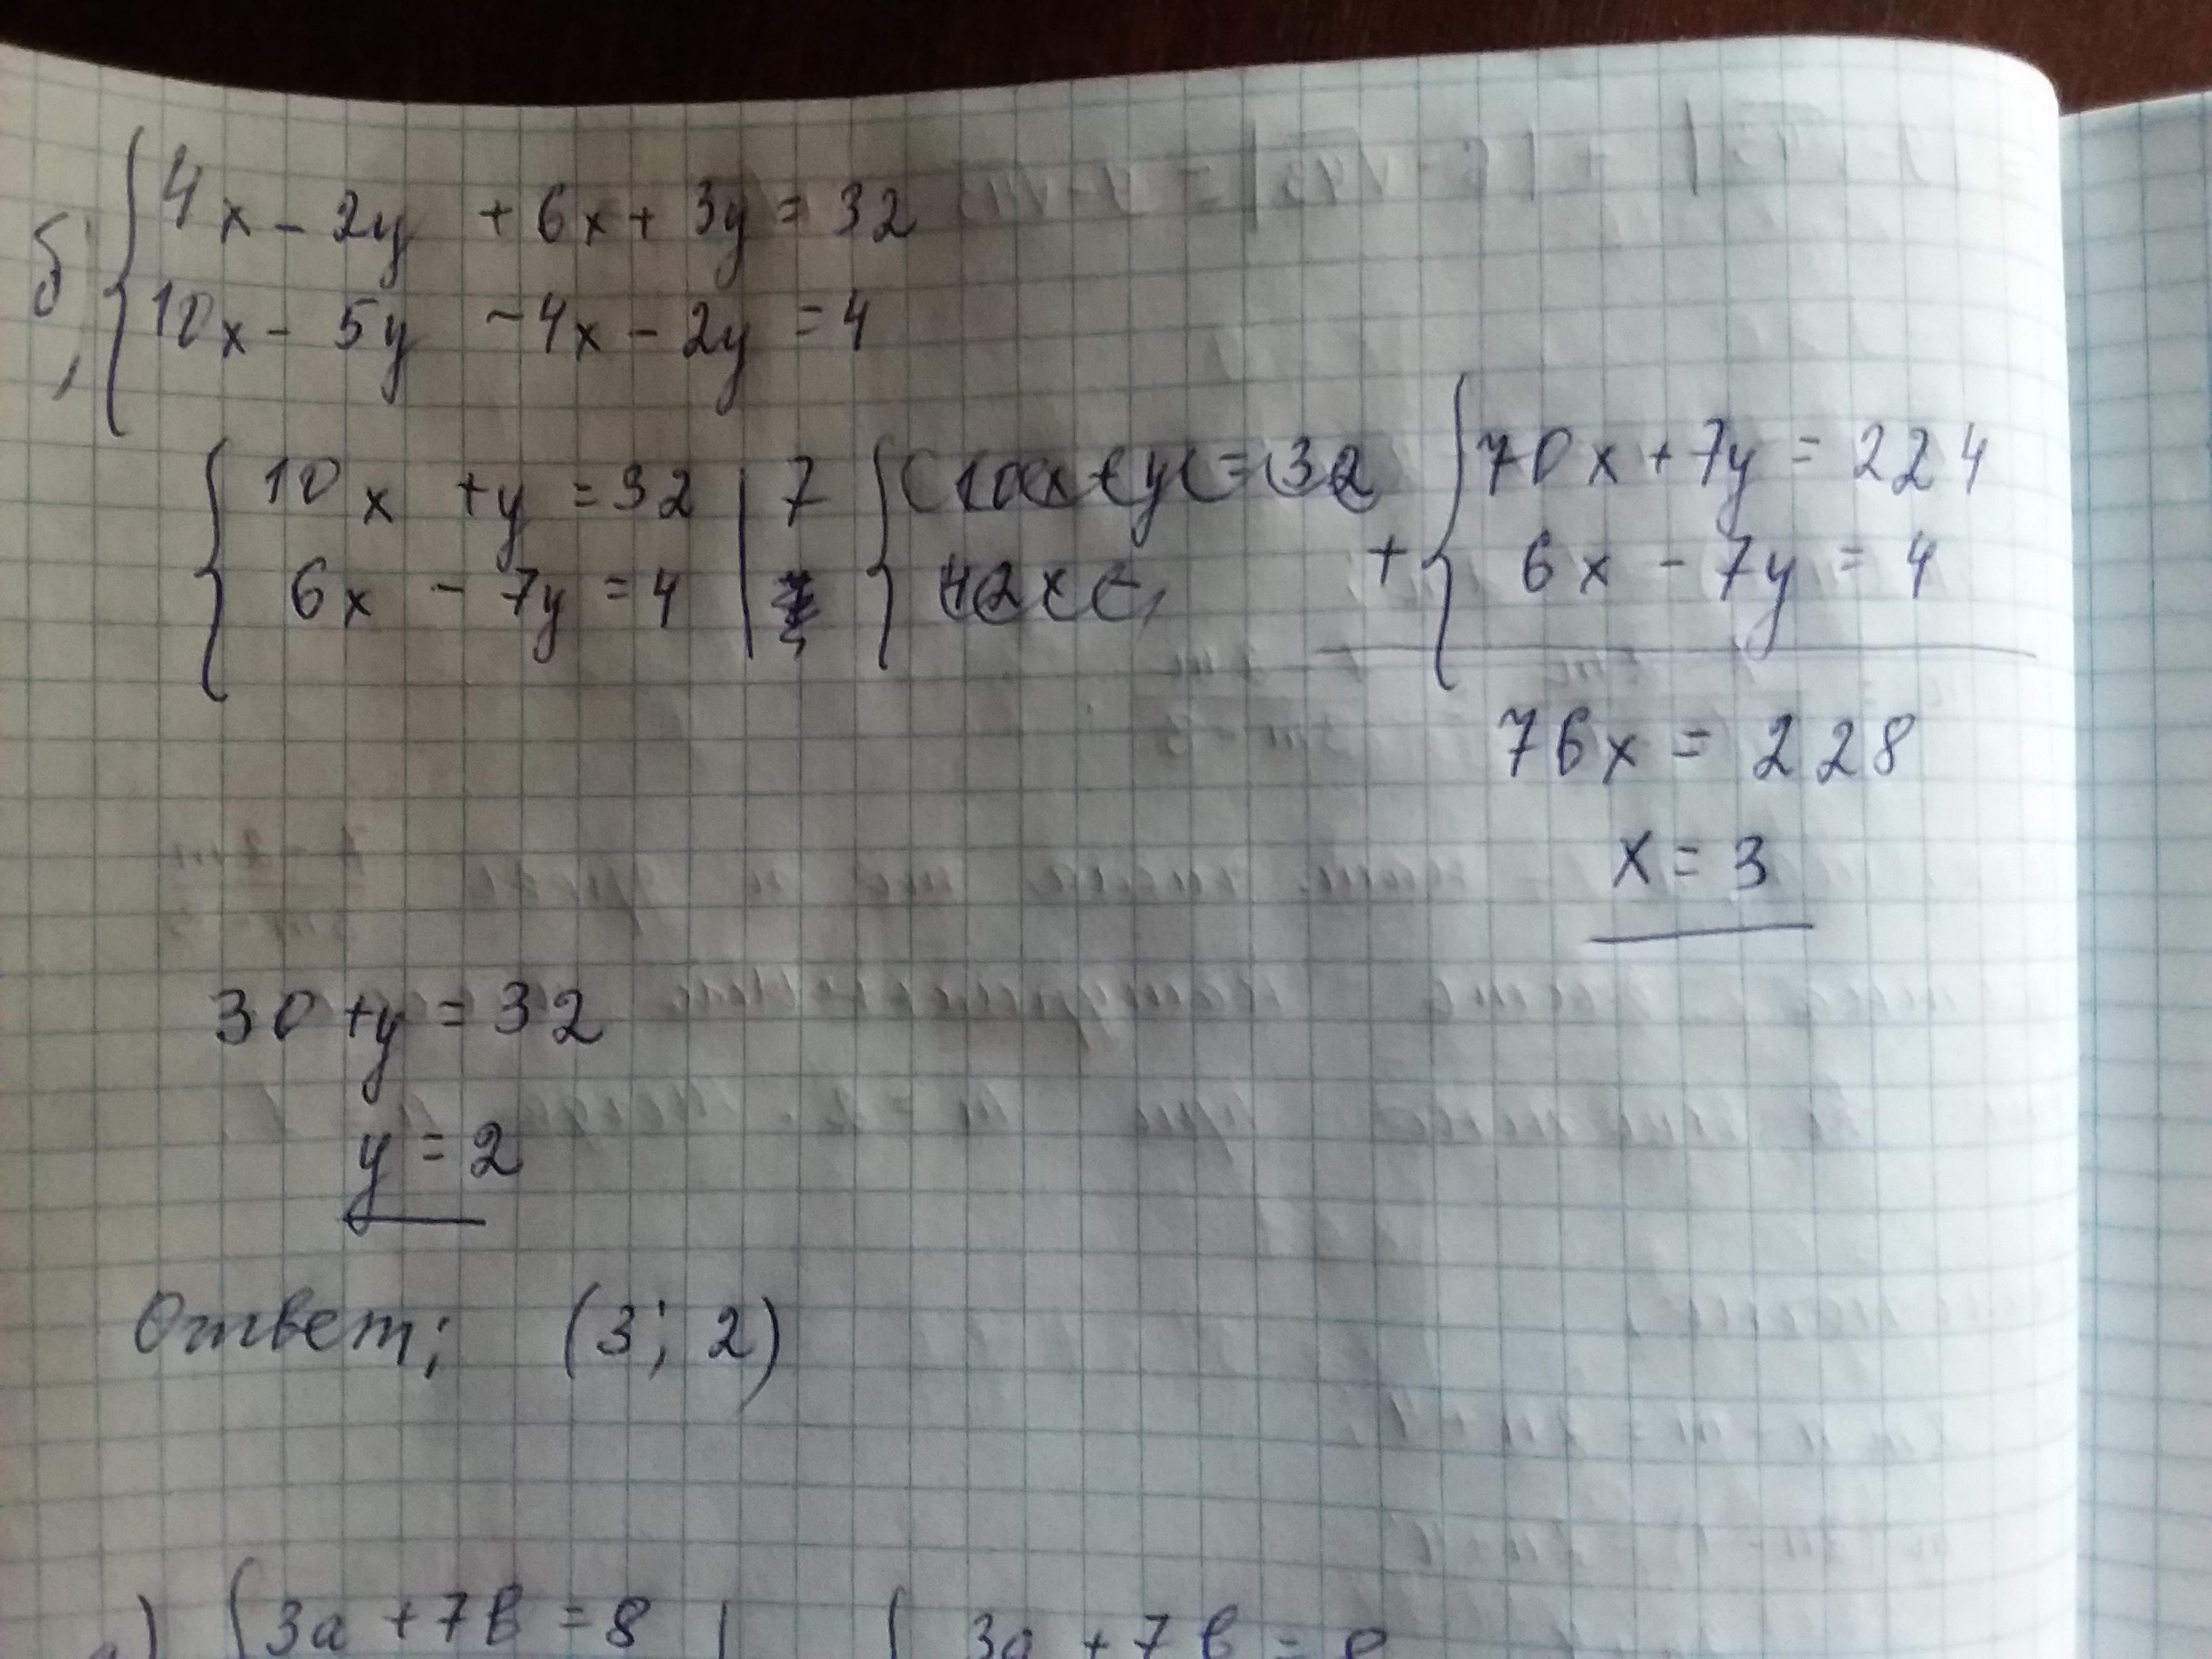 б) { 4x - 2y + 6x + 3y = 32
10x - 5y - 4x - 2y = 4
{ 10x + y = 32 | 7 { 10x + y = 32 + { 70x + 7y = 224
6x - 7y = 4 | { 42x 6x - 7y = 4
76x = 228
x = 3
30 + y = 32
y = 2
Ответ; (3; 2)
{ 3a + 7b = 8 | { 3a + 7b =